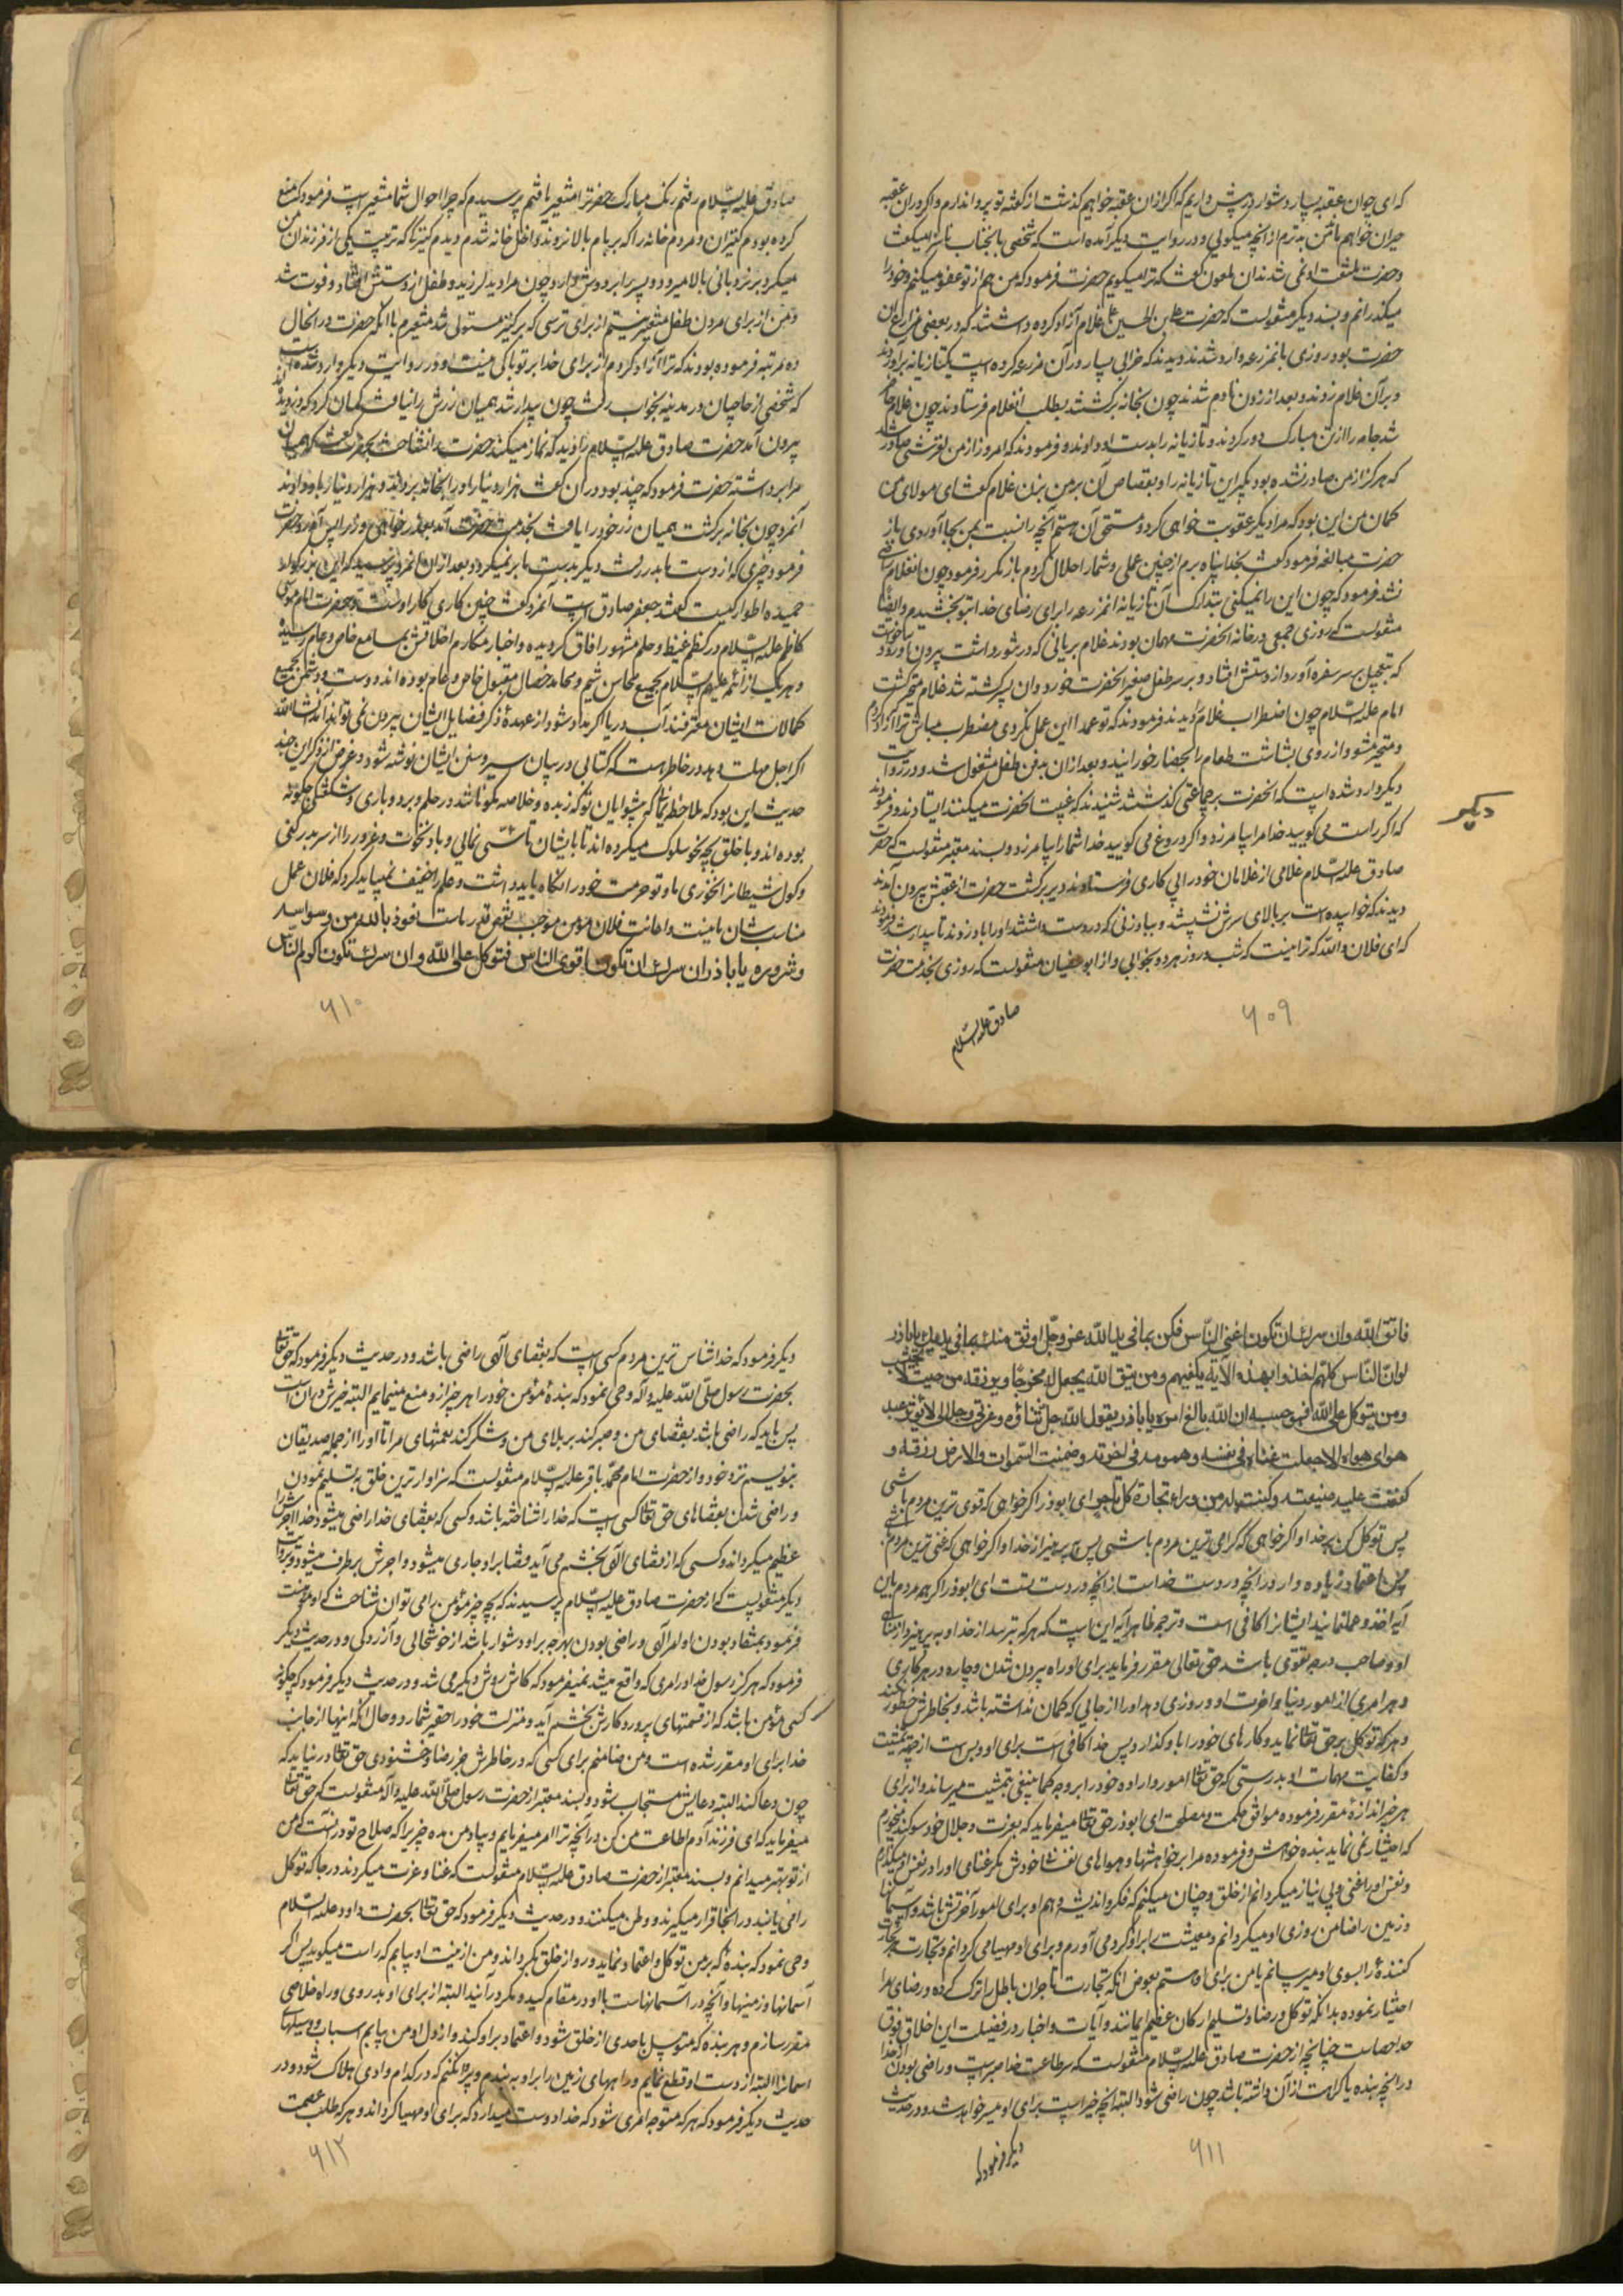 که ای جوان عقبه بسیار دشوار در پیش داریم که اگر ازان عقبه خواهم گذشت از گفتهٔ تو پروا ندارم و اگر دران عقبه
حیران خواهم ماند من بدترم از آنچه میگوئی و در روایت دیگر آمده است که شخصی بآنجناب ناسزا میگفت
و حضرت ملتفت او نمی شدند ان ملعون گفت که ترا میگویم حضرت فرمود که من هم از تو عفو میکنم و خود را
میگذرانم و بسند دیگر منقولست که حضرت علی بن الحسین علیه غلام آزاد کرده داشتند که در بعضی مزارع ان
حضرت بود روزی بآن مزرعه وارد شدند دیدند که خرابی بسیار در آن مزرعه کرده است یکتازیانه برآوردند
و بر آن غلام زدند و بعد از زدن نادم شدند چون بخانه برگشتند بطلب انغلام فرستادند چون غلام حاضر
شد جامه را از تن مبارک دور کردند و تازیانه را بدست او دادند و فرمودند که امروز از من لغزشی صادر شد
که هرگز از من صادر نشده بود بگیر این تازیانه را و بقصاص آن بر من بزن غلام گفت ای مولای من
گمان من این بود که مرا دیگر عقوبت خواهی کرد و مستحق آن هستم آنچه را نسبت بمن بجا آوردی باز
حضرت مبالغه فرمود گفت بخدا پناه برم از چنین عملی و شما را حلال کردم باز مکرر فرمود چون انغلام راضی
نشد فرمود که چون این را نمیکنی بتدارک آن تازیانه انمزرعه را برای رضای خدا بتو بخشیدم و ایضا
منقولست که روزی جمعی در خانه انحضرت مهمان بودند غلام بریانی که در تنور داشت بیرون آورد و خواست
که بتعجیل بر سر سفره آورد از دستش افتاد و بر سر طفل صغیر انحضرت خورد و ان پسر کشته شد غلام متحیر گشت
امام علیه السلام چون اضطراب غلام را دیدند فرمودند که تو عمدا این عمل نکردی مضطرب مباش ترا آزاد کردم
و متحیر مشو و از روی بشاشت طعام را بحضار خورانید و بعد ازان بدفن طفل مشغول شد و در روایت
دیگر وارد شده است که انحضرت بر جماعتی گذشتند شنیدند که غیبت انحضرت میکنند ایستادند و فرمودند
دیگر
که اگر راست می گویید خدا مرا بیامرزد و اگر دروغ می گویید خدا شما را بیامرزد و بسند معتبر منقولست که حضرت
صادق علیه السلام غلامی از غلامان خود را پی کاری فرستادند دیر برگشت حضرت از عقبش بیرون آمدند
دیدند که خوابیده است بر بالای سرش نشستند و ببادزنی که در دست داشتند او را باد زدند تا بیدار شد فرمودند
که ای فلان والله که ترا نیست که شب و روز هر دو بخوابی و از ابوسفیان منقولست که روزی بخدمت حضرت
صادق علیه السلام
۶۰۹
صادق علیه السلام رفتم رنک مبارک حضرت را متغیر یافتم پرسیدم که چرا احوال شما متغیر است فرمود که منع
کرده بودم کنیزان و مردم خانه را که ببام بالا نروند داخل خانه شدم دیدم کنیزکی که تربیت یکی از فرزندان من
میکرد بر نردبانی بالا میرود و پسر را بر دوش دارد چون مرا دید لرزید و طفل از دستش افتاد و فوت شد
و من از برای مردن طفل متغیر نیستم از برای ترسی که بر کنیز مستولی شد متغیرم با انکه حضرت در انحال
ده مرتبه فرموده بودند که ترا آزاد کردم از برای خدا بر تو باکی نیست و در روایت دیگر وارد شده است
که شخصی از حاجیان در مدینه بخواب رفت چون بیدار شد همیان زرش را نیافت گمان کرد که دزدیده اند
بیرون آمد حضرت صادق علیه السلام را دید که نماز میکند حضرت را نشناخت بحضرت گفت که همیان
مرا برداشته حضرت فرمود که چند بود دران گفت هزار دینار او را بخانه بردند و هزار دینار باو دادند
آنمرد چون بخانه برگشت همیان زر خود را یافت بخدمت حضرت آمد بعذر خواهی و زر را پس آورد حضرت
فرمود چیزی که از دست ما بدر رفت دیگر بدست ما بر نمیگردد بعد ازان آنمرد پرسید که این بزرگوار
حمیده اطوار کیست گفتند جعفر صادق است آنمرد گفت چنین کاری کار اوست و حضرت امام موسی
کاظم علیه السلام در کظم غیظ و حلم مشهور آفاق گردیده و اخبار مکارم اخلاقش بمسامع خاص و عام رسیده
و هر یک از ائمه علیهم السلام بجمیع محاسن شیم و محامد خصال مقبول خاص و عام بوده اند و دوست و دشمن بجمیع
کمالات ایشان معترفند آب دریا اگر مداد شود از عهدهٔ ذکر فضایل ایشان بیرون نمی تواند آمد انشاءالله
اگر اجل مهلت دهد در خاطر است که کتابی در بیان سیر و سنن ایشان نوشته شود و غرض از ذکر این چند
حدیث این بود که ملاحظه نمائی که پیشوایان تو که زبده و خلاصه مکونات اند در حلم و بردباری و شکستگی چگونه
بوده اند و با خلق بچه نحو سلوک میکرده اند تا بایشان تأسی نمائی و باد نخوت و غرور را از سر بدر کنی
و گول شیطان را نخوری باو تو حرمت خود را نگاه باید داشت و علم را خفیف نمیباید کرد که فلان عمل
مناسب شان ما نیست و اعانت فلان مؤمن موجب نقص قدر ماست نعوذ بالله من وسواسه
و شروره یا باذر ان سرک ان تکون اقوی الناس فتوکل علی الله و ان سرک تکون اکرم الناس
۶۱۰
فاتق الله و ان سرک ان تکون اغنی الناس فکن بما فی ید الله عز وجل اوثق منک بما فی یدیک یا باذر
لو ان الناس کلهم اخذوا بهذه الآیة یکفیهم و من یتق الله یجعل له مخرجا و یرزقه من حیث لا یحتسب
و من یتوکل علی الله فهو حسبه ان الله بالغ امره یا باذر یقول الله جل ثناؤه و عزتی و جلالی لا یؤثر عبد
هوای هواه الا جعلت غناه فی نفسه و همومه فی اخرته و ضمنت السموات والارض رزقه و
کففت علیه ضیعته و کنت له من وراء تجارة کل تاجر ای ابوذر اگر خواهی که قوی ترین مردم باشی
پس توکل کن بر خدا و اگر خواهی که گرامی ترین مردم باشی پس بپرهیز از خدا و اگر خواهی که غنی ترین مردم باشی
پس اعتماد زیاده دار در آنچه در دست خداست از آنچه در دست تست ای ابوذر اگر همه مردم باین
آیه اخذ و عمل نمایند ایشان را کافی است و ترجمه ظاهر آیه این است که هر که بترسد از خدا و بپرهیزد از مناهی
او و صاحب درجه تقوی باشد حق تعالی مقرر فرماید برای او راه بیرون شدن و چاره در هر کاری
و هر امری از امور دنیا و اخرت او و روزی دهد او را از جایی که گمان نداشته باشد و بخاطرش خطور نکند
و هر که توکل بر حق تعالی نماید و کارهای خود را باو گذارد پس خدا کافی است برای او و بس است از جهة تمشیت
و کفایت مهمات او بدرستی که حق تعالی امور و اراده خود را بر وجه کما ینبغی بتمشیت میرساند و از برای
هر چیز اندازهٔ مقرر فرموده موافق حکمت و مصلحت ای ابوذر حق تعالی میفرماید که بعزت و جلال خود سوگند میخورم
که اختیار نمی نماید بنده خواهش و فرموده مرا بر خواهشها و هواهای نفسانی خودش مگر غنای او را در نفس او میگذارم
و نفس او را غنی و بی نیاز میگردانم از خلق و چنان میکنم که فکر و اندیشه و هم او برای امور آخرتش باشد و آسمانها
و زمین را ضامن روزی او میگردانم و معیشت را بر او گرد می آورم و برای او مهیا می گردانم و تجارت هر تجارت
کننده را بسوی او میرسانم یا من برای او هستم بعوض انکه تجارت تاجران باطل را ترک کرده و رضای مرا
اختیار نموده بدانکه توکل و رضا و تسلیم ارکان عظیم ایمانند و آیات و اخبار در فضیلت این اخلاق فوق
حد احصاست چنانچه از حضرت صادق علیه السلام منقولست که سر طاعت خدا صبر است و راضی بودن از خدا
در آنچه بنده یا کراهت از آن داشته باشد چون راضی شود البته آنچه خیر است برای او میسر خواهد شد و در حدیث
دیگر فرمود که
۶۱۱
دیگر فرمود که خداشناس ترین مردم کسی است که بقضای آلهی راضی باشد و در حدیث دیگر فرمود که حق تعالی
بحضرت رسول صلی الله علیه و آله وحی نمود که بندهٔ مؤمن خود را هر چیز ازو منع مینمایم البته خیرش در ان است
پس باید که راضی باشد بقضای من و صبر کند بر بلای من و شکر کند نعمتهای مرا تا او را از جمله صدیقان
بنویسم نزد خود و از حضرت امام محمد باقر علیه السلام منقولست که سزاوارترین خلق به تسلیم نمودن
و راضی شدن بقضاهای حق تعالی کسی است که خدا را شناخته باشد و کسی که بقضای خدا راضی میشود خدا اجرش را
عظیم میگرداند و کسی که از قضای الهی بخشم می آید قضا بر او جاری میشود و اجرش برطرف میشود و بروایت
دیگر منقولست که از حضرت صادق علیه السلام پرسیدند که بچه چیز مؤمن را می توان شناخت که او مومنست
فرمود بمنقاد بودن اوامر الهی و راضی بودن بهرچه بر او دشوار باشد از خوشحالی و آزردگی و در حدیث دیگر
فرمود که هرگز رسول خدا در امری که واقع میشد نمیفرمود که کاش روش دیگر می شد و در حدیث دیگر فرمود که چگونه
کسی مؤمن باشد که از قسمتهای پروردگارش بخشم آید و منزلت خود را حقیر شمارد و حال آنکه انها از جانب
خدا برای او مقرر شده است و من ضامنم برای کسی که در خاطرش جز رضا و خشنودی حق تعالی در نیاید که
چون دعا کند البته دعایش مستجاب شود و بسند معتبر از حضرت رسول صلی الله علیه و آله منقولست که حق تعالی
میفرماید که ای فرزند آدم اطاعت من کن در آنچه ترا امر میفرمایم و بیاد من مده چیزی را که صلاح تو در آنست که من
از تو بهتر میدانم و بسند معتبر از حضرت صادق علیه السلام منقولست که غنا و عزت میگردند در جا که توکل
را می یابند در انجا قرار میگیرند و وطن میکنند و در حدیث دیگر فرمود که حق تعالی بحضرت داود علیه السلام
وحی نمود که بندهٔ که بر من توکل و اعتماد نماید و رو از خلق بگرداند و من از نیت او یابم که راست میگوید پس اگر
آسمانها و زمینها و آنچه در آسمانهاست با او در مقام کید و مکر درآیند البته از برای او بدر روی و راه خلاصی
مقرر سازم و هر بنده که متوسل باحدی از خلق شود و اعتماد بر او کند و از دل او من یابم اسباب و وسیلهای
آسمان را البته از دست او قطع نمایم و راههای زمین را بر او به بندم و پروا نکنم که در کدام وادی هلاک شود و در
حدیث دیگر فرمود که هر که متوجه امری شود که خدا دوست میدارد که برای او مهیا گرداند و هر که طلب عصمت
۶۱۲